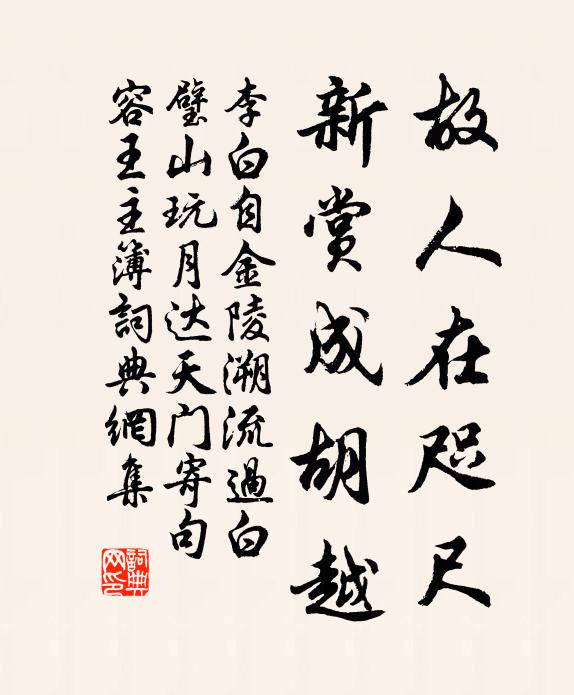 故人在咫尺
新赏成胡越
李白自金陵溯流過白
璧山玩月达天门寄句
容王主簿詞典網集
詞典
网印